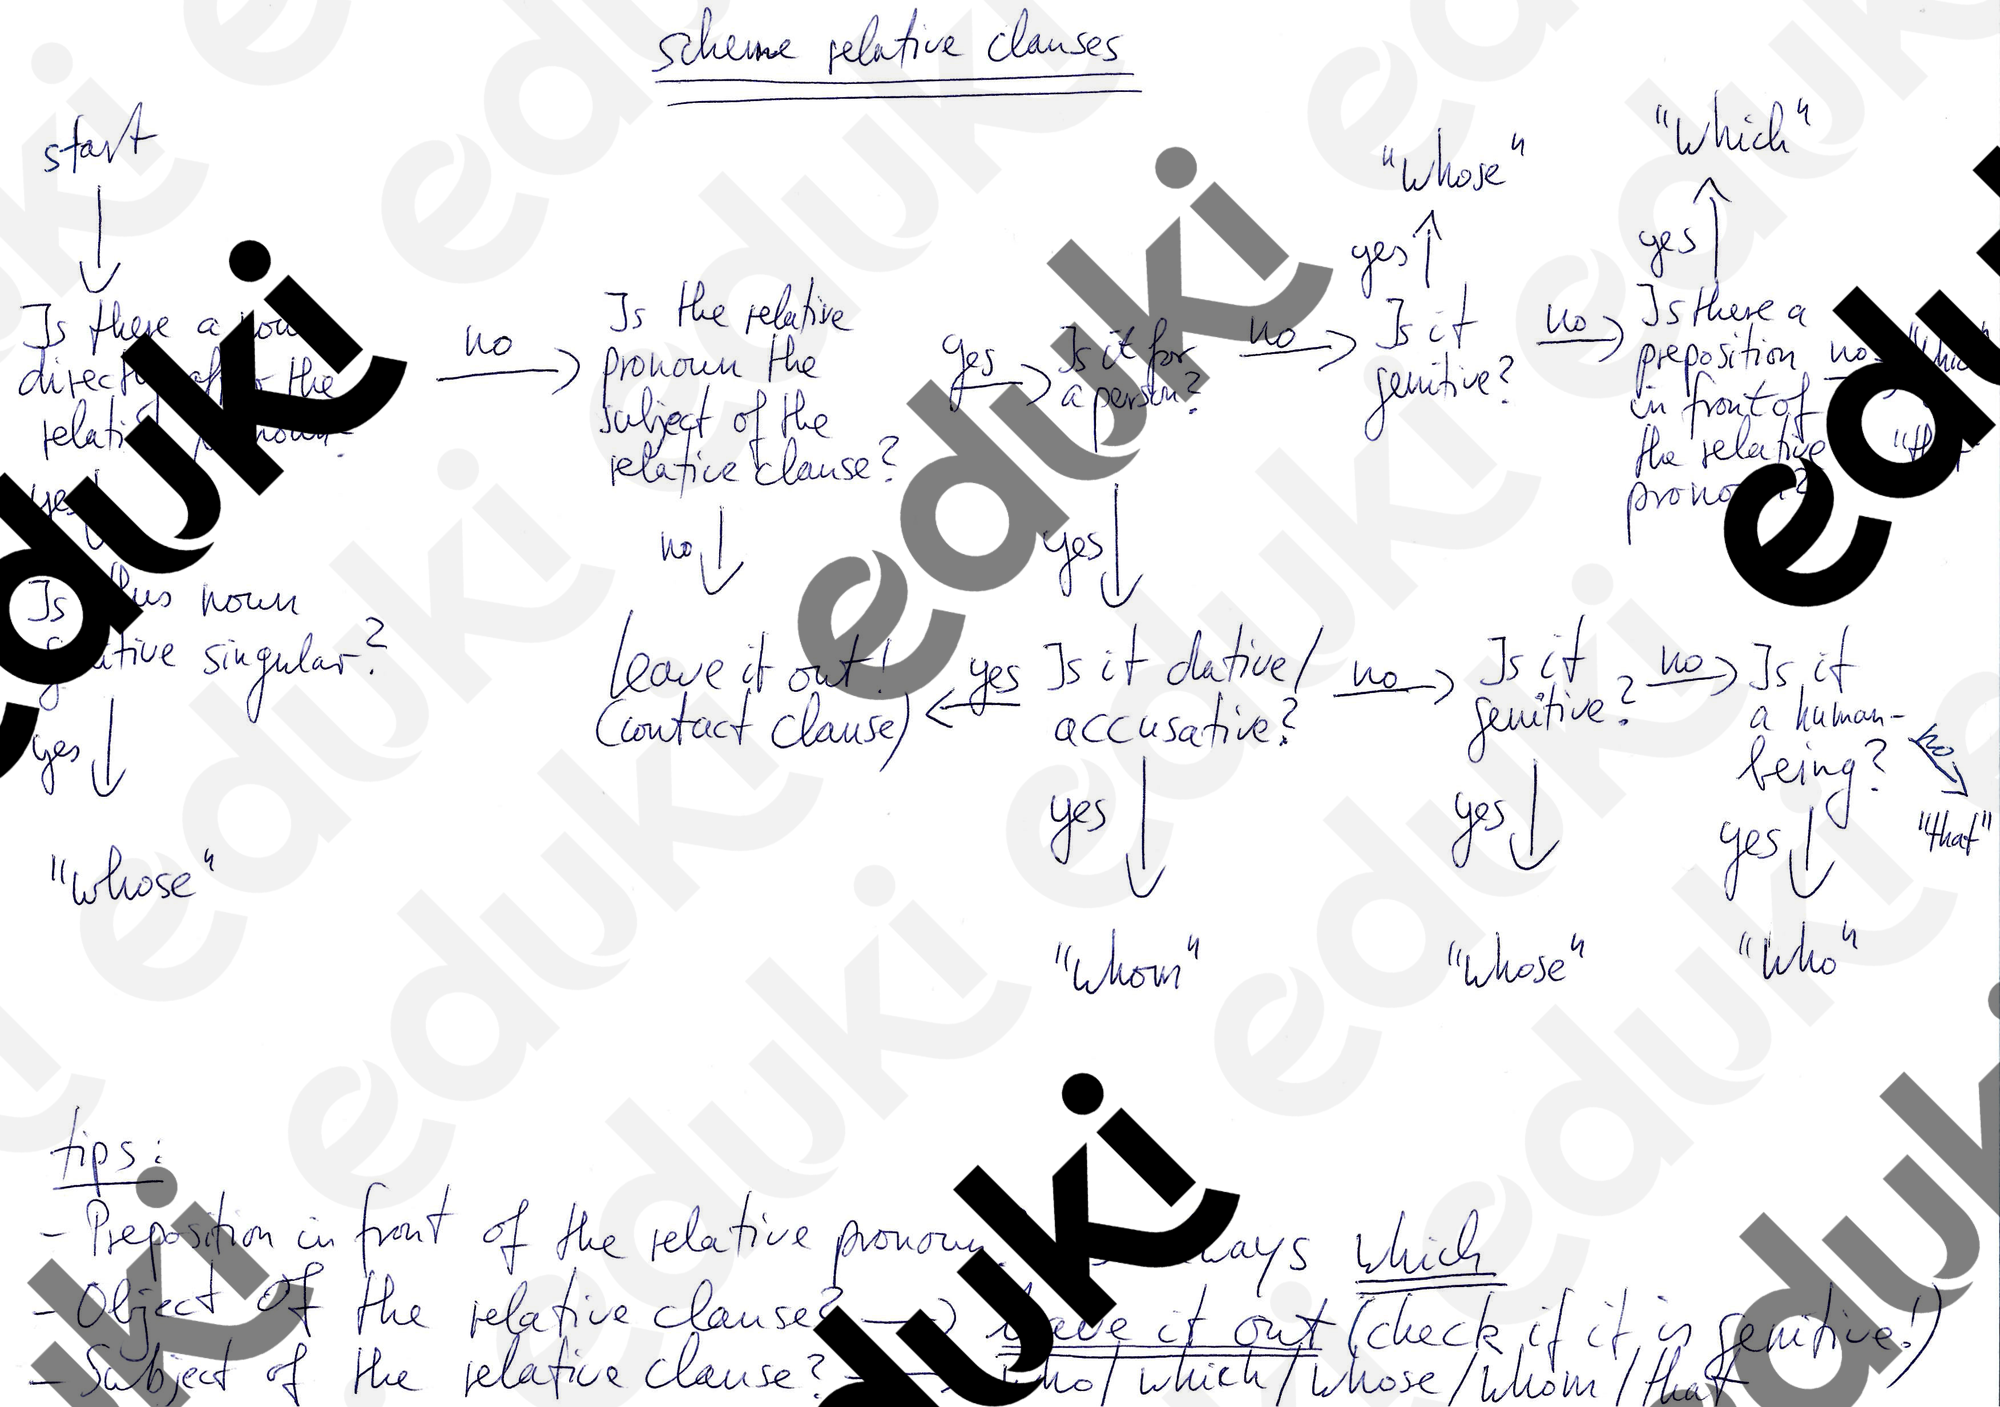 scheme relative clauses
start
Is there a
directly after the
relative
yes
Is this noun
genitive singular?
yes
"whose"
no
Is the relative
pronoun the
subject of the
relative clause?
no
leave it out!
(contact clause)
yes
Is it for
a person?
yes
Is it dative/
accusative?
yes
yes
"whom"
no
Is it
genitive?
yes
"whose"
no
Is it
genitive?
yes
"whose"
no
Is it
a human-
being?
yes
"who"
no
"that"
no
Is there a
preposition
in front of
the relative
pronoun?
yes
"which"
no
tips:
- Preposition in front of the relative pronoun which
- Object of the relative clause? → leave it out (check if it is genitive!)
- Subject of the relative clause? → who/which/whose/whom/that
eduki